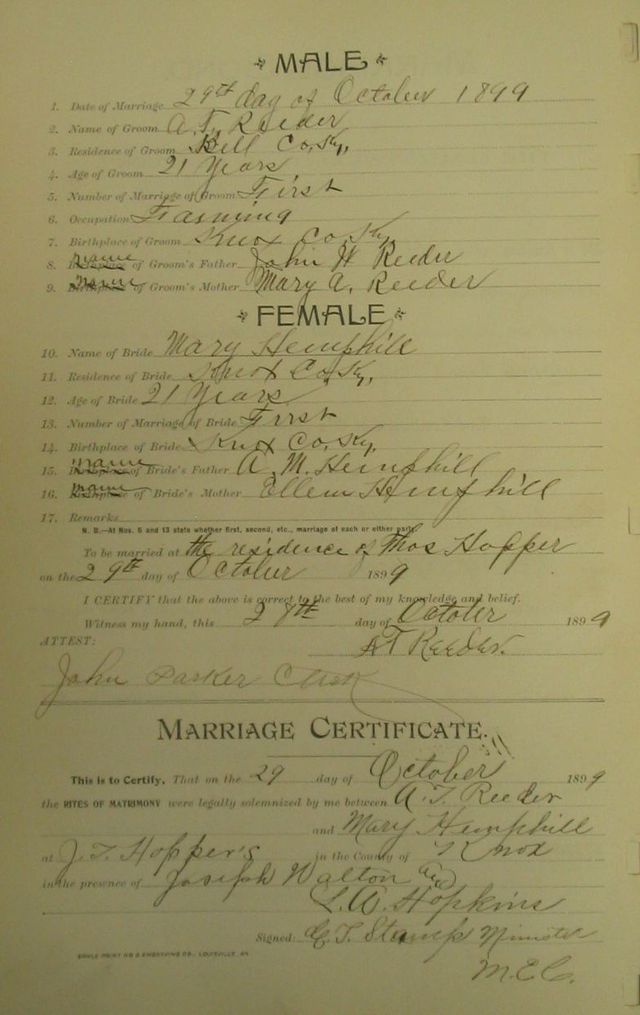 MALE
1. Date of Marriage 29th day of October 1899
2. Name of Groom A. T. Reeder
3. Residence of Groom Bell Co, Ky,
4. Age of Groom 21 Years
5. Number of Marriage of Groom First
6. Occupation Farming
7. Birthplace of Groom Knox Co, Ky
8. Name of Groom's Father John H Reeder
9. Name of Groom's Mother Mary A. Reeder
FEMALE
10. Name of Bride Mary Hemphill
11. Residence of Bride Knox Co, Ky,
12. Age of Bride 21 Years
13. Number of Marriage of Bride First
14. Birthplace of Bride Knox Co, Ky,
15. name of Bride's Father A. M. Hemphill
16. name of Bride's Mother Ellen Hemphill
17. Remarks
N. B.—At Nos. 5 and 13 state whether first, second, etc., marriage of each or either party.
To be married at the residence of Thos Hopper
on the 29th day of October 1899
I CERTIFY that the above is correct to the best of my knowledge and belief.
Witness my hand, this 28th day of October 1899
ATTEST: A T Reeder.
John Parker Clerk
MARRIAGE CERTIFICATE.
This is to Certify, That on the 29 day of October 1899
the RITES OF MATRIMONY were legally solemnized by me between A. T. Reeder
and Mary Hemphill
at J. T. Hopper's in the County of Knox
in the presence of Joseph Walton and
Hopkins
Signed: Stamp Minister
LOUISVILLE, KY.
M. E. C.